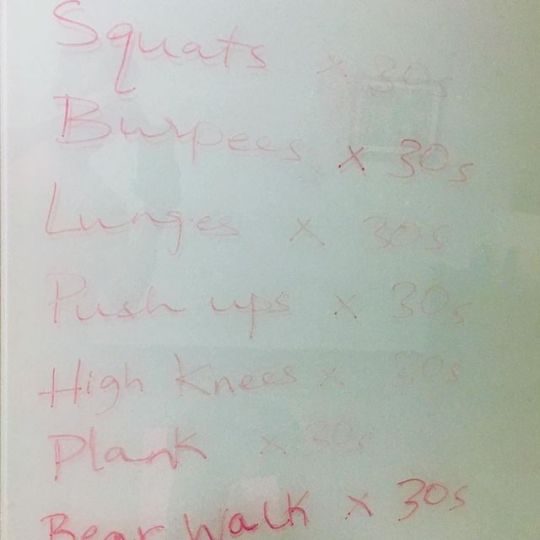 Squats x 30s
Burpees x 30s
Lunges x 30s
Push ups x 30s
High Knees x 30s
Plank x 30s
Bear Walk x 30s